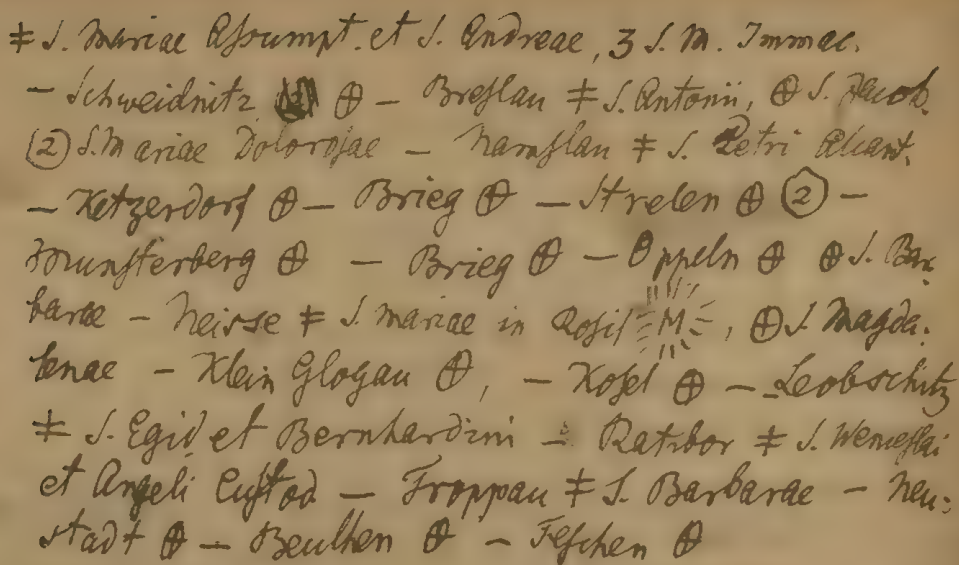 ‡ S. Mariae Aſsumpt. et S. Andreae, 3 S. M. Immac.
– Schweidnitz ⊕ – Breſlau ‡ S. Antonii, ⊕ S. Jacob.
② S. Mariae Doloroſae – Namſlau ‡ S. Petri Alcant.
– Ketzerdorf ⊕ – Brieg ⊕ – Strelen ⊕ ② –
Munſterberg ⊕ – Brieg ⊕ – Oppeln ⊕ ⊕ S. Bar:
barae – Neisse ‡ S. Mariae in Roſis M, ⊕ S. Magda:
lenae – Klein Glogau ⊕, – Koſel ⊕ – Leobschütz
‡ S. Egid et Bernhardini – Ratibor ‡ S. Wenceſlai
et Angeli Cuſtod – Troppau ‡ S. Barbarae – Neu:
stadt ⊕ – Beuthen ⊕ – Teſchen ⊕